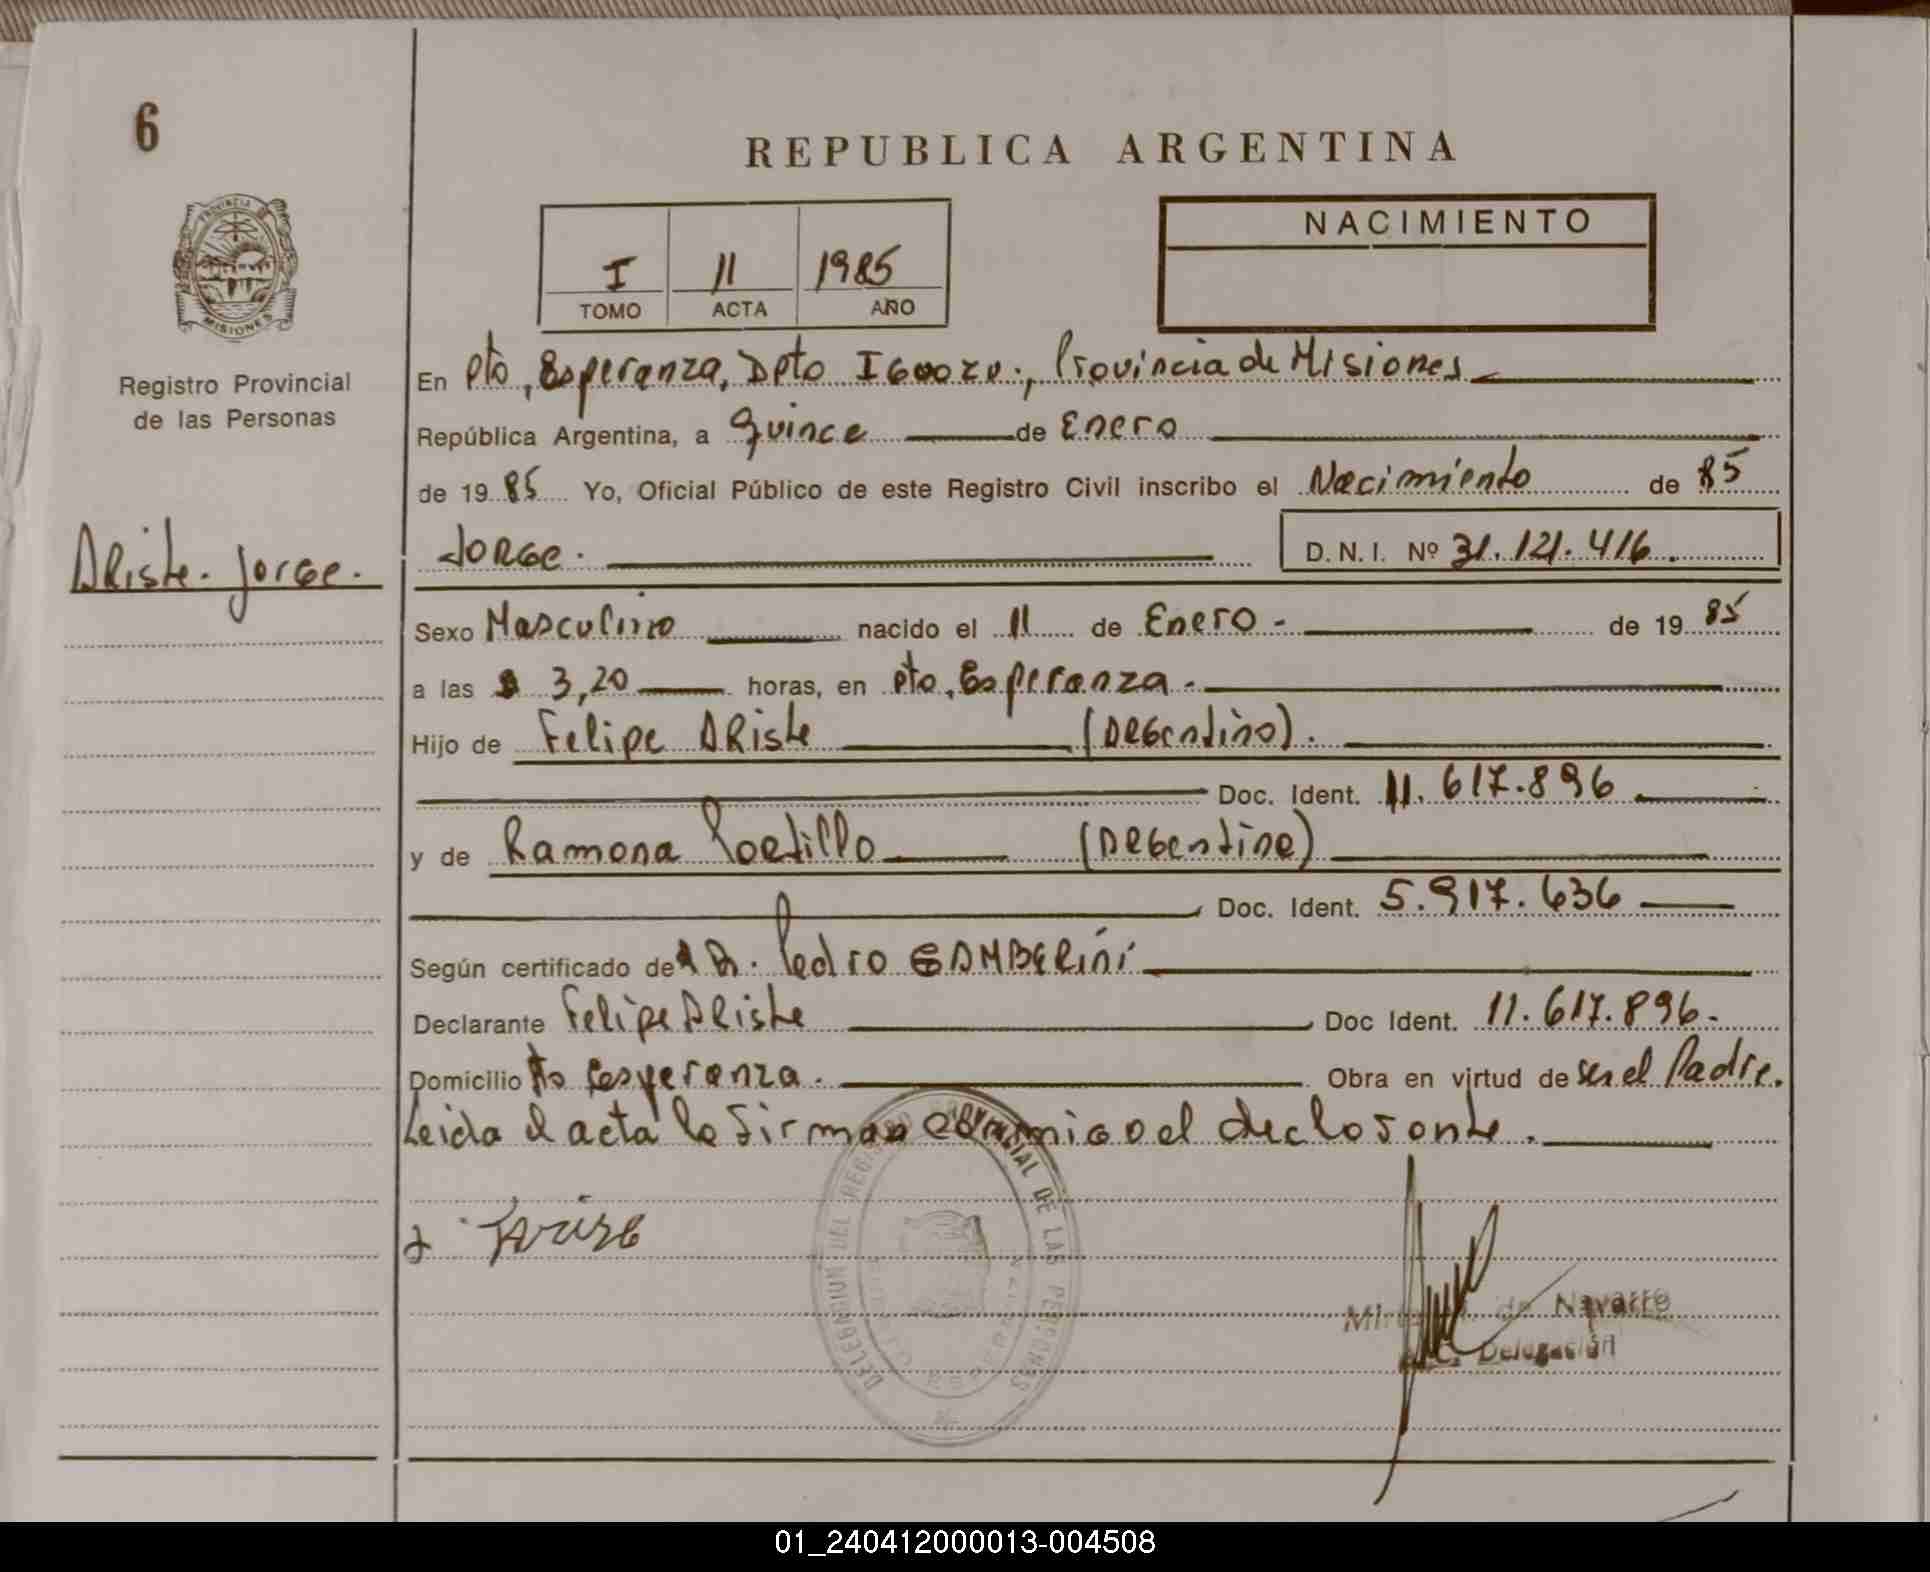 6
REPUBLICA ARGENTINA
PROVINCIA DE
MISIONES
Registro Provincial
de las Personas
I 11 1985
TOMO ACTA AÑO
NACIMIENTO
En Pto, Esperanza, Dpto Iguazu., Provincia de Misiones
República Argentina, a quince de Enero
de 1985 Yo, Oficial Público de este Registro Civil inscribo el Nacimiento de 85
Ariste. Jorge.
Jorge. D.N.I. Nº 31.121.416.
Sexo Masculino nacido el 11 de Enero - de 1985
a las 3,20 horas, en Pto, Esperanza.
Hijo de Felipe Ariste (Argentino).
Doc. Ident. 11.617.896
y de Ramona Portillo (Argentina)
Doc. Ident. 5.917.636
Según certificado de Dr. Pedro GAMBERini
Declarante Felipe Ariste Doc Ident. 11.617.896.
Domicilio Pto Esperanza. Obra en virtud de ser el Padre.
Leida el acta la firman conmigo el declarante.
DELEGACION DEL REGISTRO PROVINCIAL DE LAS PERSONAS
de Navarro
Delegación
01_240412000013-004508